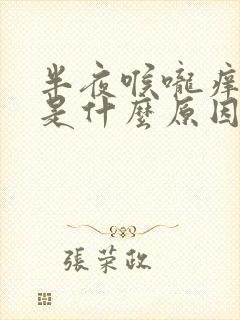 半夜喉嚨痒
是什麼原因
張荣政